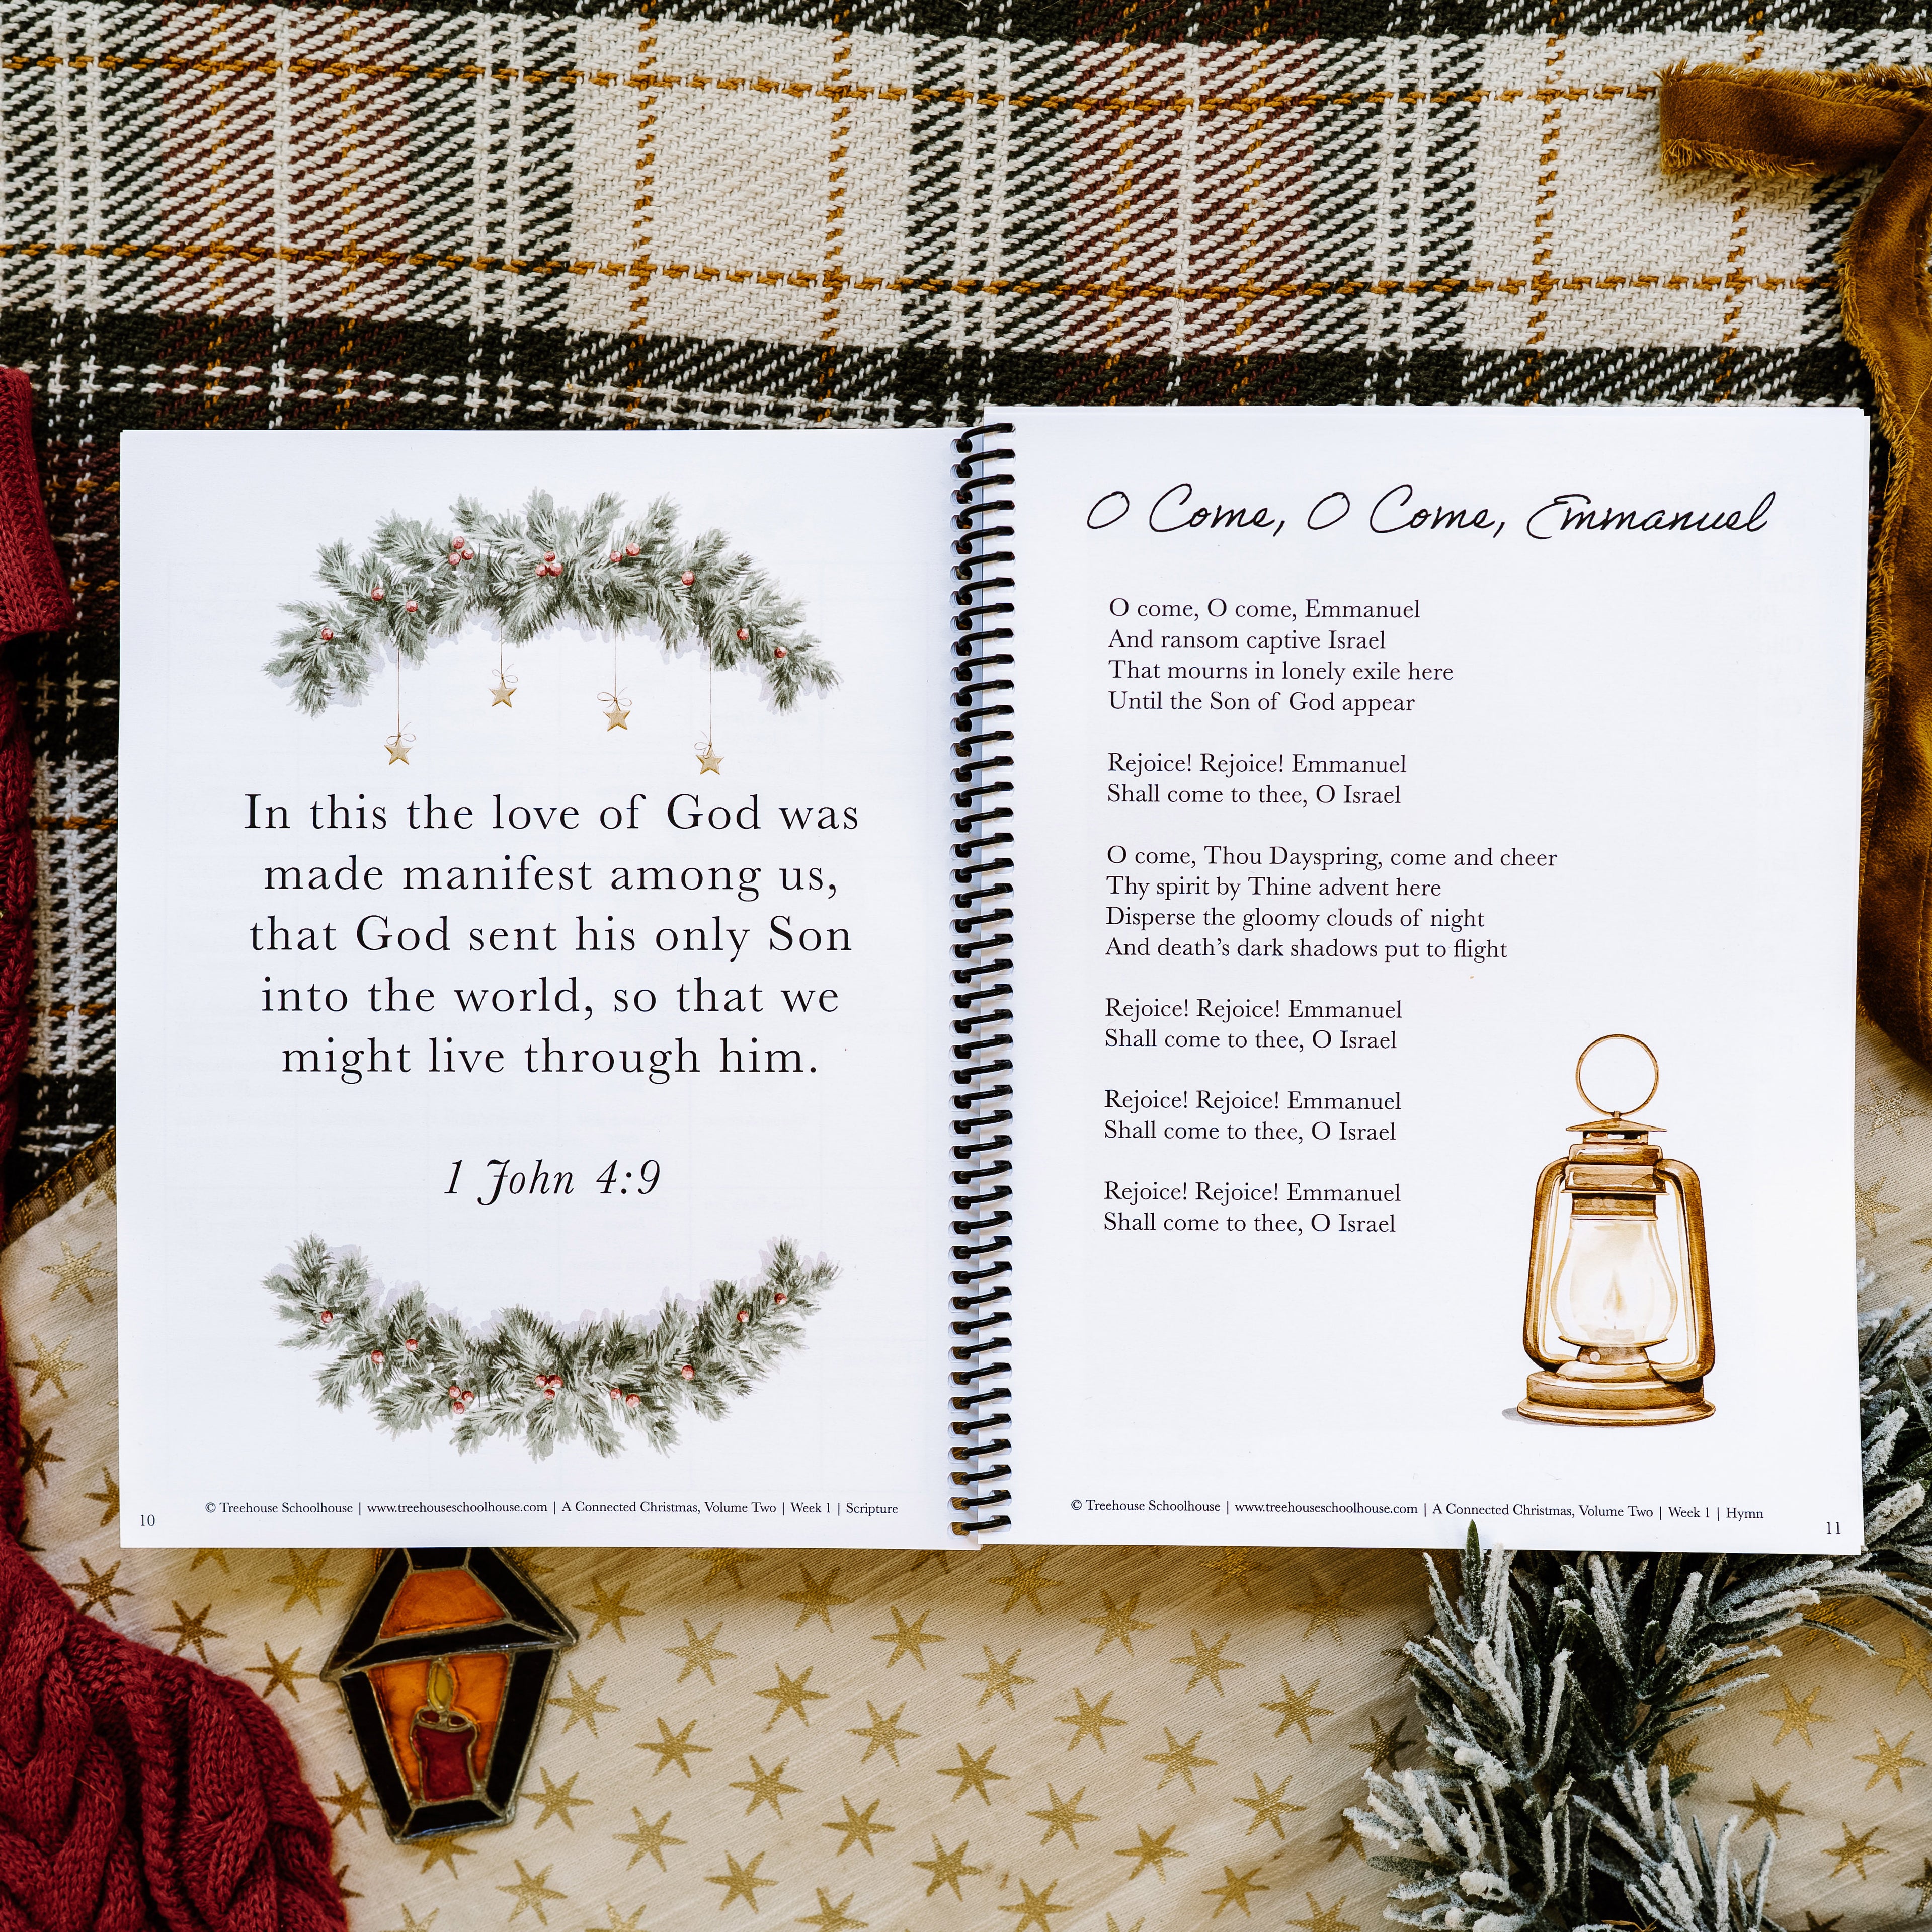 In this the love of God was
made manifest among us,
that God sent his only Son
into the world, so that we
might live through him.
1 John 4:9
© Treehouse Schoolhouse | www.treehouseschoolhouse.com | A Connected Christmas, Volume Two | Week 1 | Scripture
10
O Come, O Come, Emmanuel
O come, O come, Emmanuel
And ransom captive Israel
That mourns in lonely exile here
Until the Son of God appear
Rejoice! Rejoice! Emmanuel
Shall come to thee, O Israel
O come, Thou Dayspring, come and cheer
Thy spirit by Thine advent here
Disperse the gloomy clouds of night
And death's dark shadows put to flight
Rejoice! Rejoice! Emmanuel
Shall come to thee, O Israel
Rejoice! Rejoice! Emmanuel
Shall come to thee, O Israel
Rejoice! Rejoice! Emmanuel
Shall come to thee, O Israel
© Treehouse Schoolhouse | www.treehouseschoolhouse.com | A Connected Christmas, Volume Two | Week 1 | Hymn
11